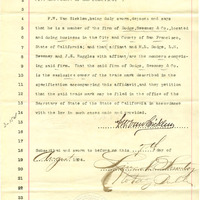 F.W. Van Sicklen, being duly sworn, deposes and says
that he is a member of the firm of Dodge, Sweeney & Co., located
and doing business in the City and County of San Francisco,
State of California; and that affiant and H.L. Dodge, L.H.
Sweeney and J.E. Ruggles with affiant, are the members compos-
ing said firm. That the said firm of Dodge, Sweeney & Co.
is the exclusive owner of the trade mark described in the
specification accompanying this affidavit; and they petition
that the said trade mark may be filed in the office of the
Secretary of State of the State of California in accordance
with the law in such cases made and provided.
Subscribed and sworn to before me this